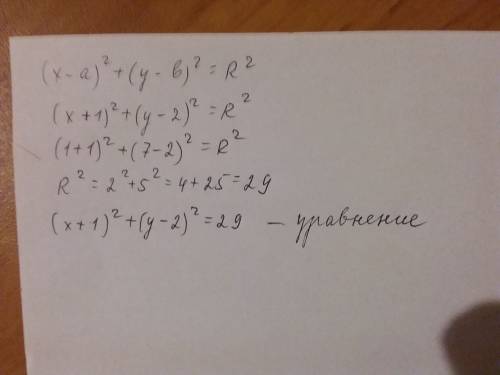 (x-a)² + (y-b)² = R²
(x+1)² + (y-2)² = R²
(1+1)² + (7-2)² = R²
R² = 2² + 5² = 4 + 25 = 29
(x+1)² + (y-2)² = 29 — уравнение